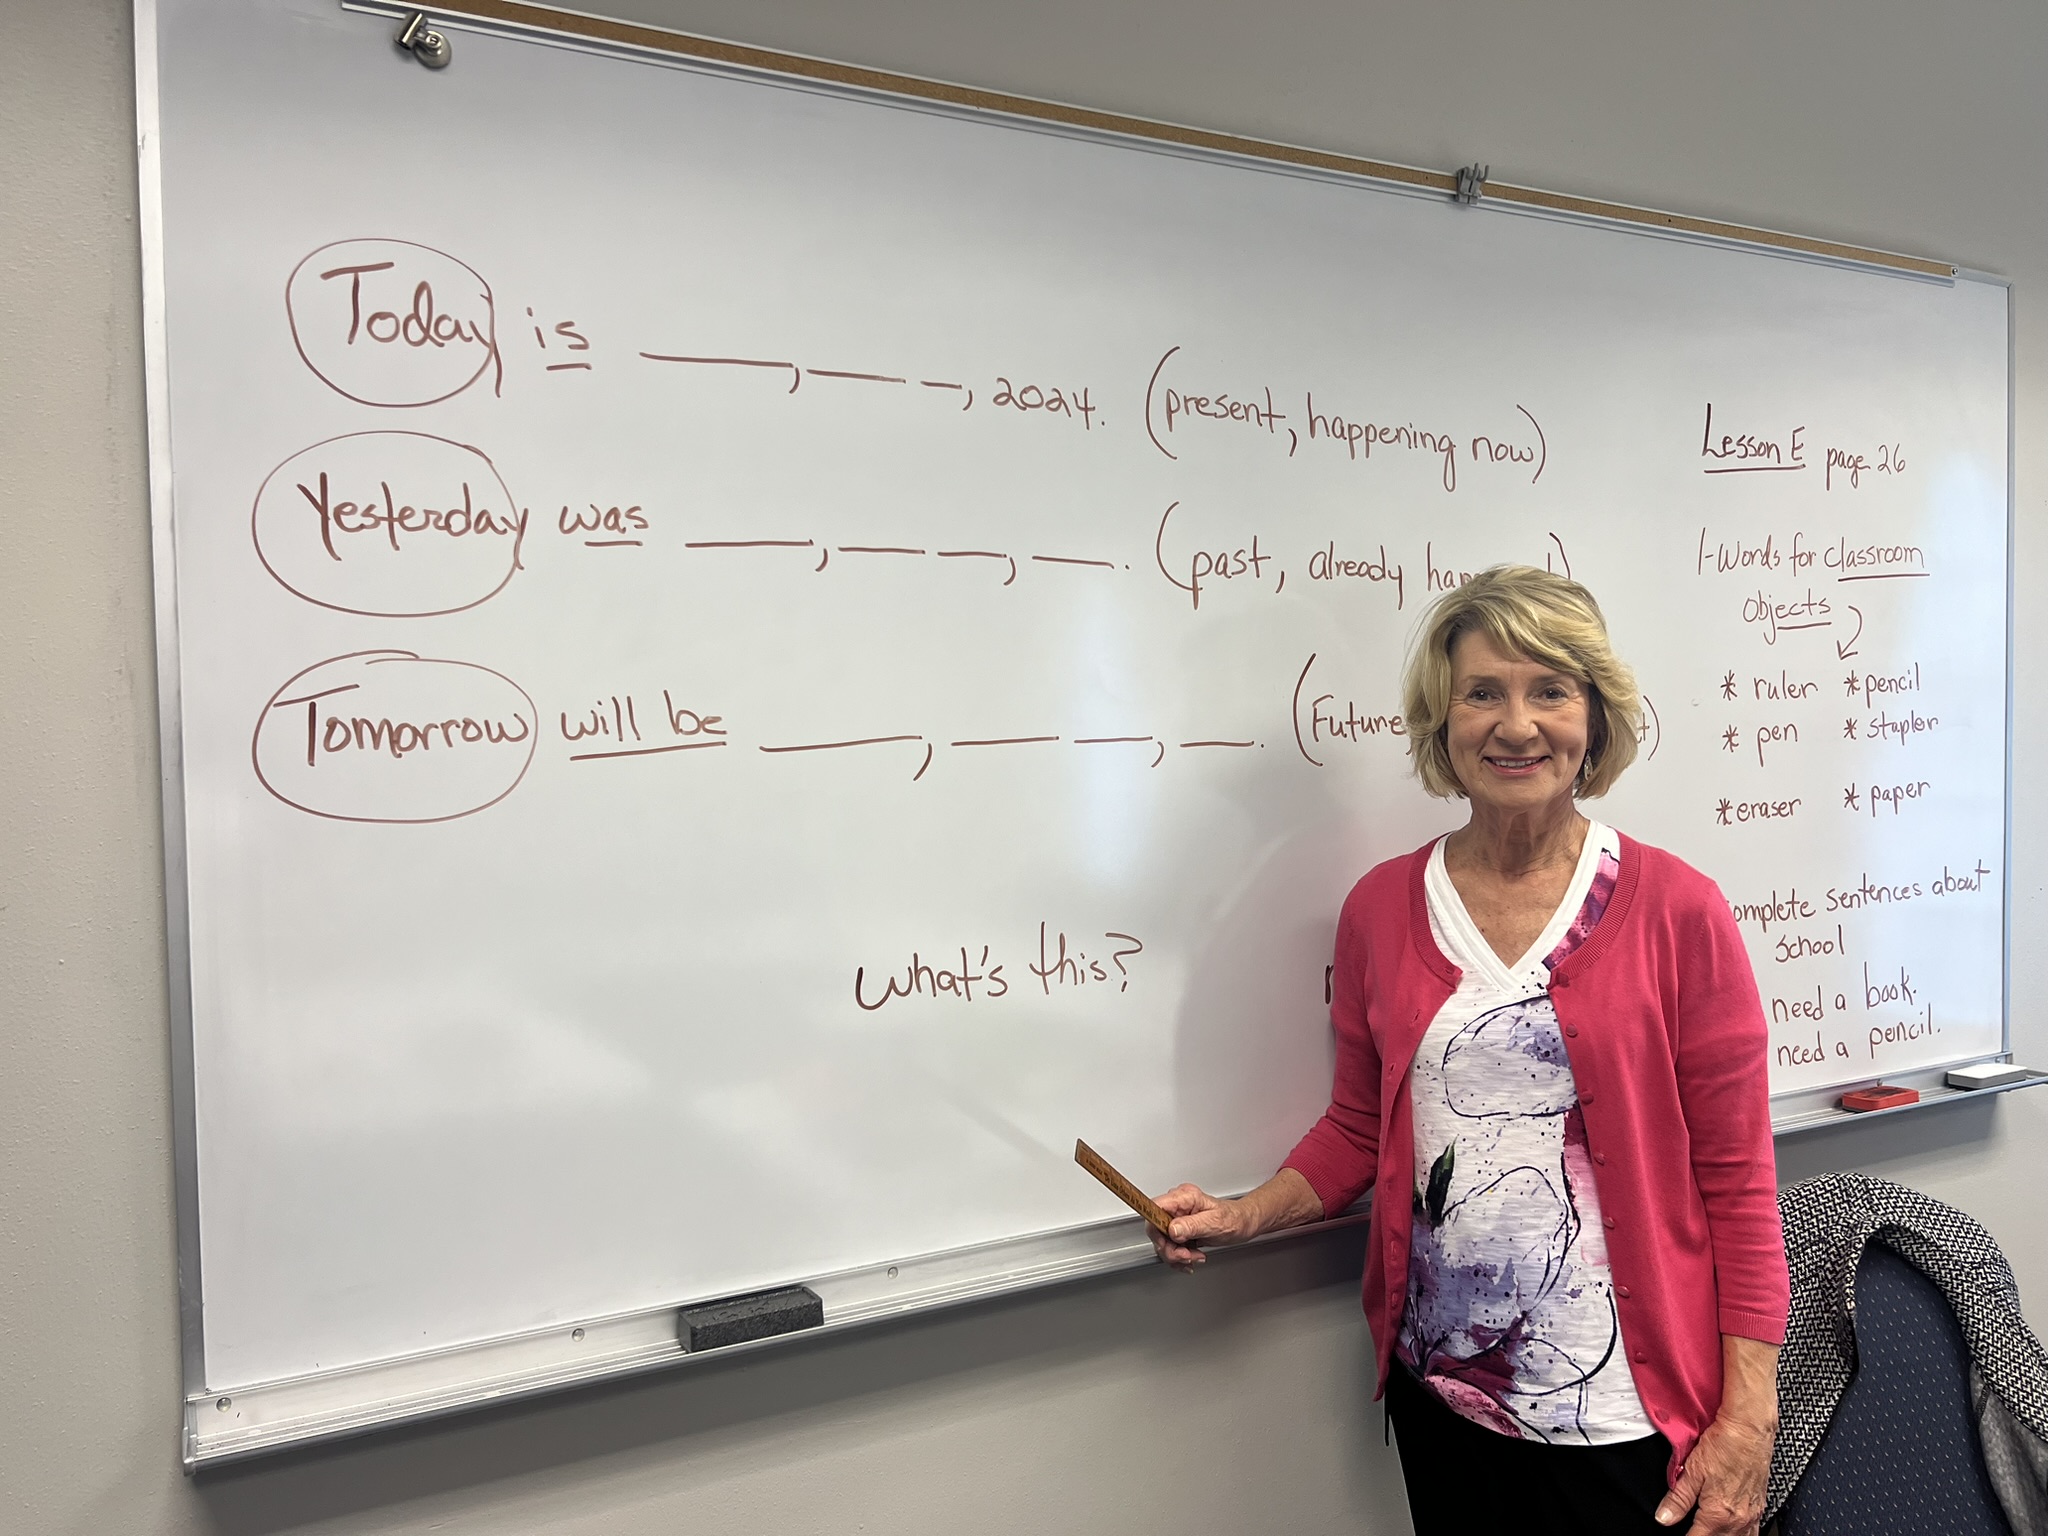 Today is ____, ___ _, 2024. (present, happening now)
Yesterday was ____, ___ __, ___. (past, already
Tomorrow will be ____, ___ __, __. (Future,
What's this?
Lesson E page 26
1-Words for classroom
objects
* ruler * pencil
* pen * stapler
* eraser * paper
sentences about
school
need a book.
need a pencil.